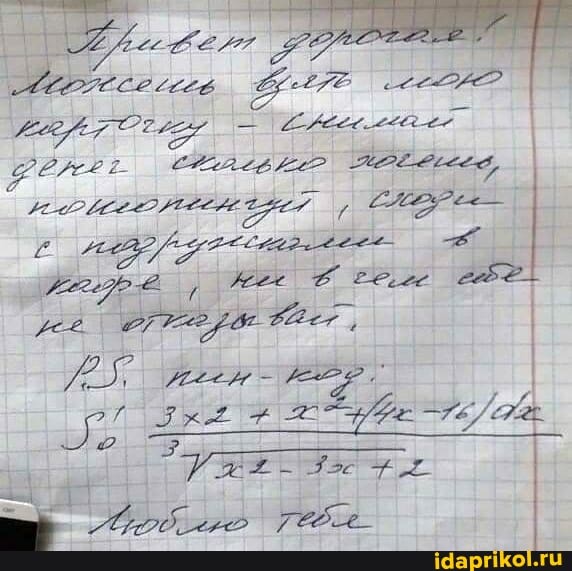 Привет дорогая!
Можешь взять мою
карточку - снимай
денег сколько хочешь,
пошопингуй, сходи
с подружками в
кафе, ни в чем себе
не отказывай.
P.S. пин-код:
∫₀¹ 3x2 + x² + (4x - 16) dx
³√x2 - 3x + 2
Люблю тебя
idaprikol.ru